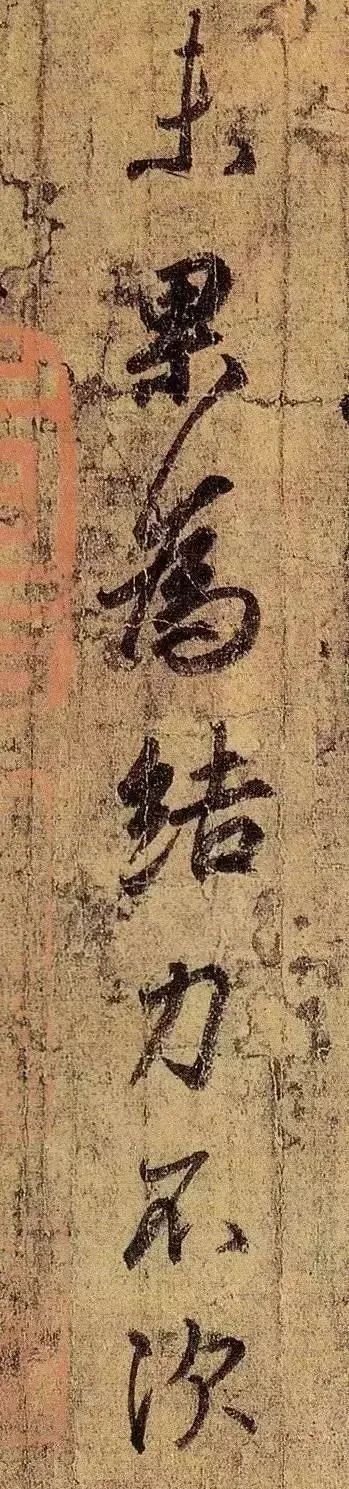 未果為結力不次